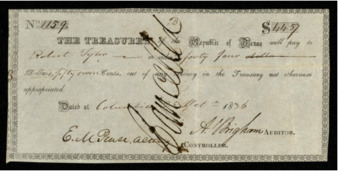 No. 1159. $44.57
THE TREASURER of the Republic of Texas will pay to
Robert or order forty four dollars
Dollars, fifty seven Cents, out of any money in the Treasury not otherwise
appropriated.
Dated at Columbia 1836
E. M. Pease, acting A. Brigham AUDITOR.
CONTROLLER.
Cancelled